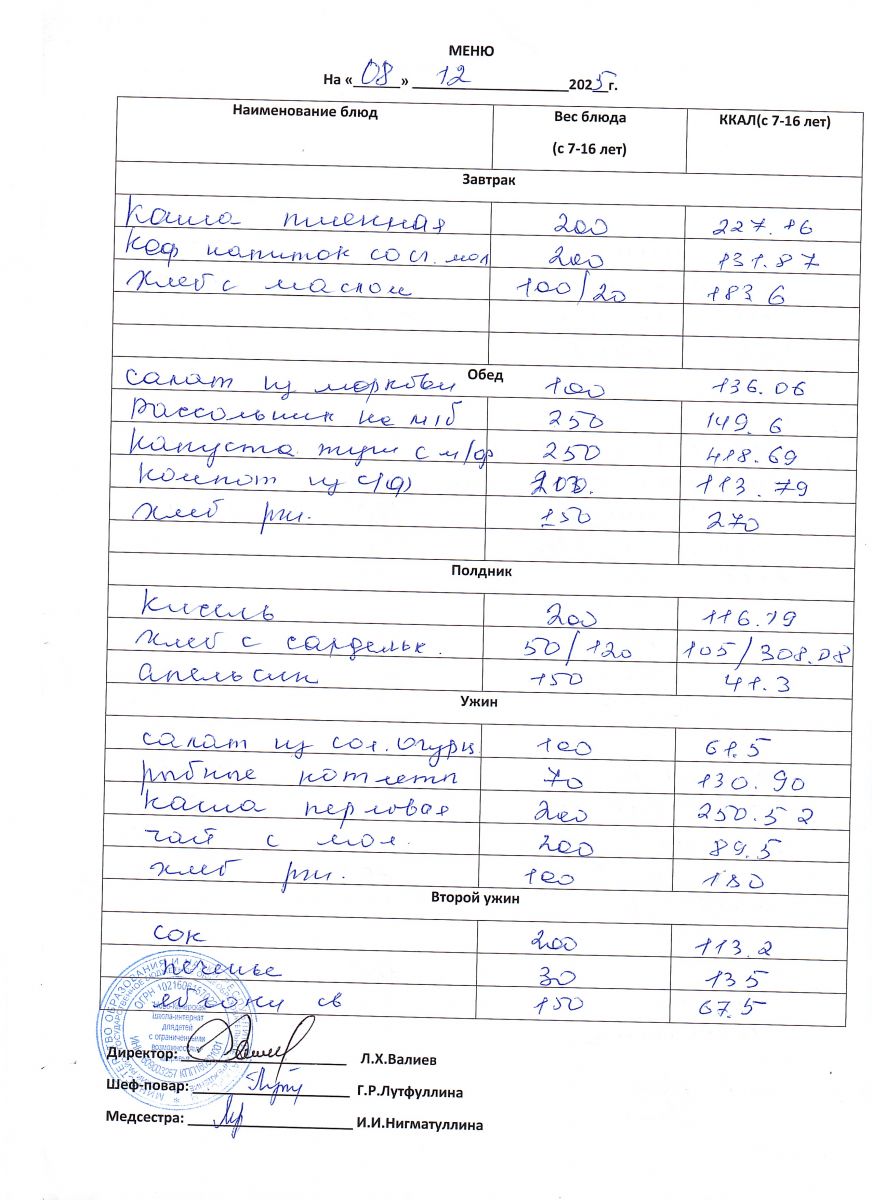 МЕНЮ
На « 08 » 12 2025 г.
Наименование блюд Вес блюда (с 7-16 лет) ККАЛ(с 7-16 лет)
Завтрак
Каша пшенная 200 227.86
Коф напиток со сг. мол 200 131.87
Хлеб с маслом 100/20 183 6
Обед
Салат из моркови 100 136.06
Рассольник на м/б 250 149.6
Капуста туш с м/ф 250 418.69
Компот из с/ф 200. 113.79
хлеб рж. 150 270
Полдник
Кисель 200 116.19
хлеб с сардельк. 50/120 105/308.08
апельсин 150 41.3
Ужин
салат из сол. огурц 100 61.5
рыбные котлеты 70 130.90
каша перловая 200 250.52
чай с мол. 200 89.5
хлеб рж. 100 180
Второй ужин
сок 200 113.2
печенье 30 135
яблоки св 150 67.5
школа-интернат
для детей
с ограниченными
возможностями
Директор: Л.Х.Валиев
Шеф-повар: Г.Р.Лутфуллина
Медсестра: И.И.Нигматуллина